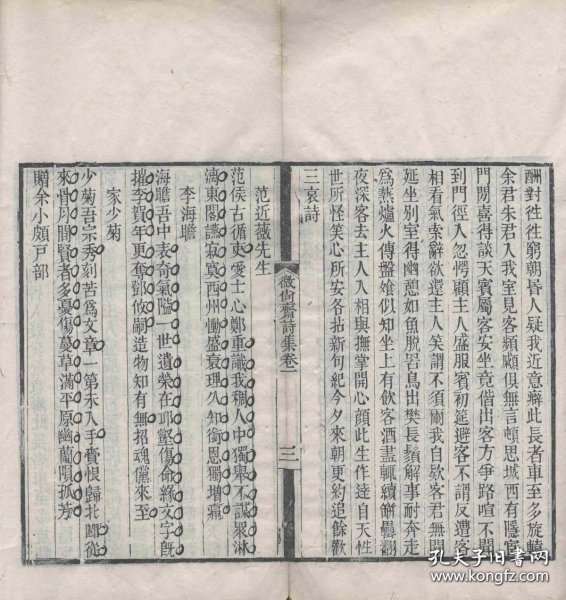 酬對往往窮朝昏人疑我近意癖此長者車至多旋轅
余君朱君入我室見客頻顣俱無言頓思城西有隱宦
門閒喜得談天賓屬客安坐竟偕出客方爭路喧不聞
到門徑入忽愕顧主人盛服賓初筵避客不謂反遭客
相看氣索辭欲還主人笑謂不須爾我自欵客君無閒
延坐别室得幽憩如魚脫罟鳥出樊長鬚解事耐奔走
為熱爐火傳盤飧似知坐上有飲客酒盡輒續缾罍翻
夜深客去主人入相與撫掌開心顏此生作達自天性
世所怪笑心所安各拈新句紀今夕來朝更約追餘歡
三哀詩
范近薇先生
范侯古循吏愛士心鄭重識我稠人中獨舉不誠衆淋
漓東閣讌寂寞西州慟盛衰理久知銜恩獨增痛
李海瞻
海瞻吾中表奇氣隘一世遺榮在邱壑傷命緣文字旣
摧李賀年更奪鄧攸嗣造物知有無招魂儻來至
家少菊
少菊吾宗秀刻苦為文章一第未入手賫恨歸北邙從
來骨月間賢者多憂傷蔓草滿平原幽蘭隕孤芳
贈余小頗戸部
微尙齋詩集卷一
三
孔夫子旧书网
www.kongfz.com